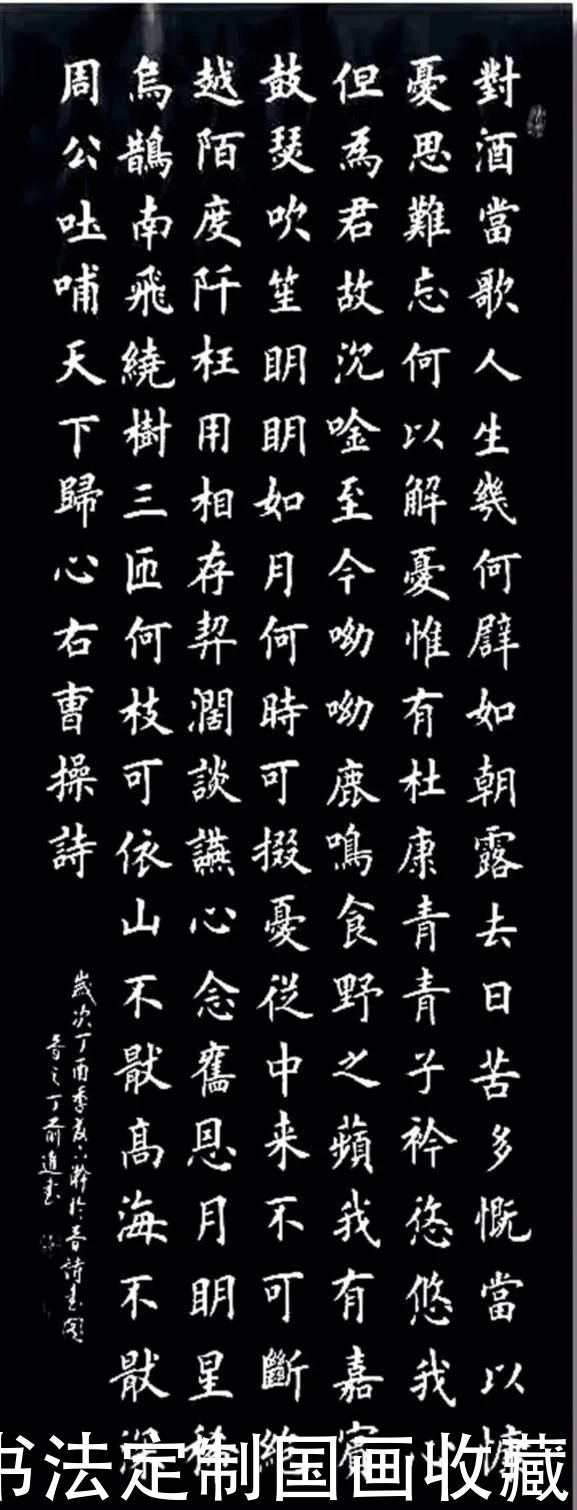 對酒當歌人生幾何譬如朝露去日苦多慨當以慷
憂思難忘何以解憂惟有杜康青青子衿悠悠我心
但為君故沉唫至今呦呦鹿鳴食野之蘋我有嘉賓
鼓瑟吹笙明明如月何時可掇憂從中来不可斷絕
越陌度阡枉用相存契濶談讌心念舊恩月明星稀
烏鵲南飛繞樹三匝何枝可依山不猒高海不猒深
周公吐哺天下歸心右曹操詩
歲次丁酉季夏於晉詩書
丁前進書
书法定制国画收藏